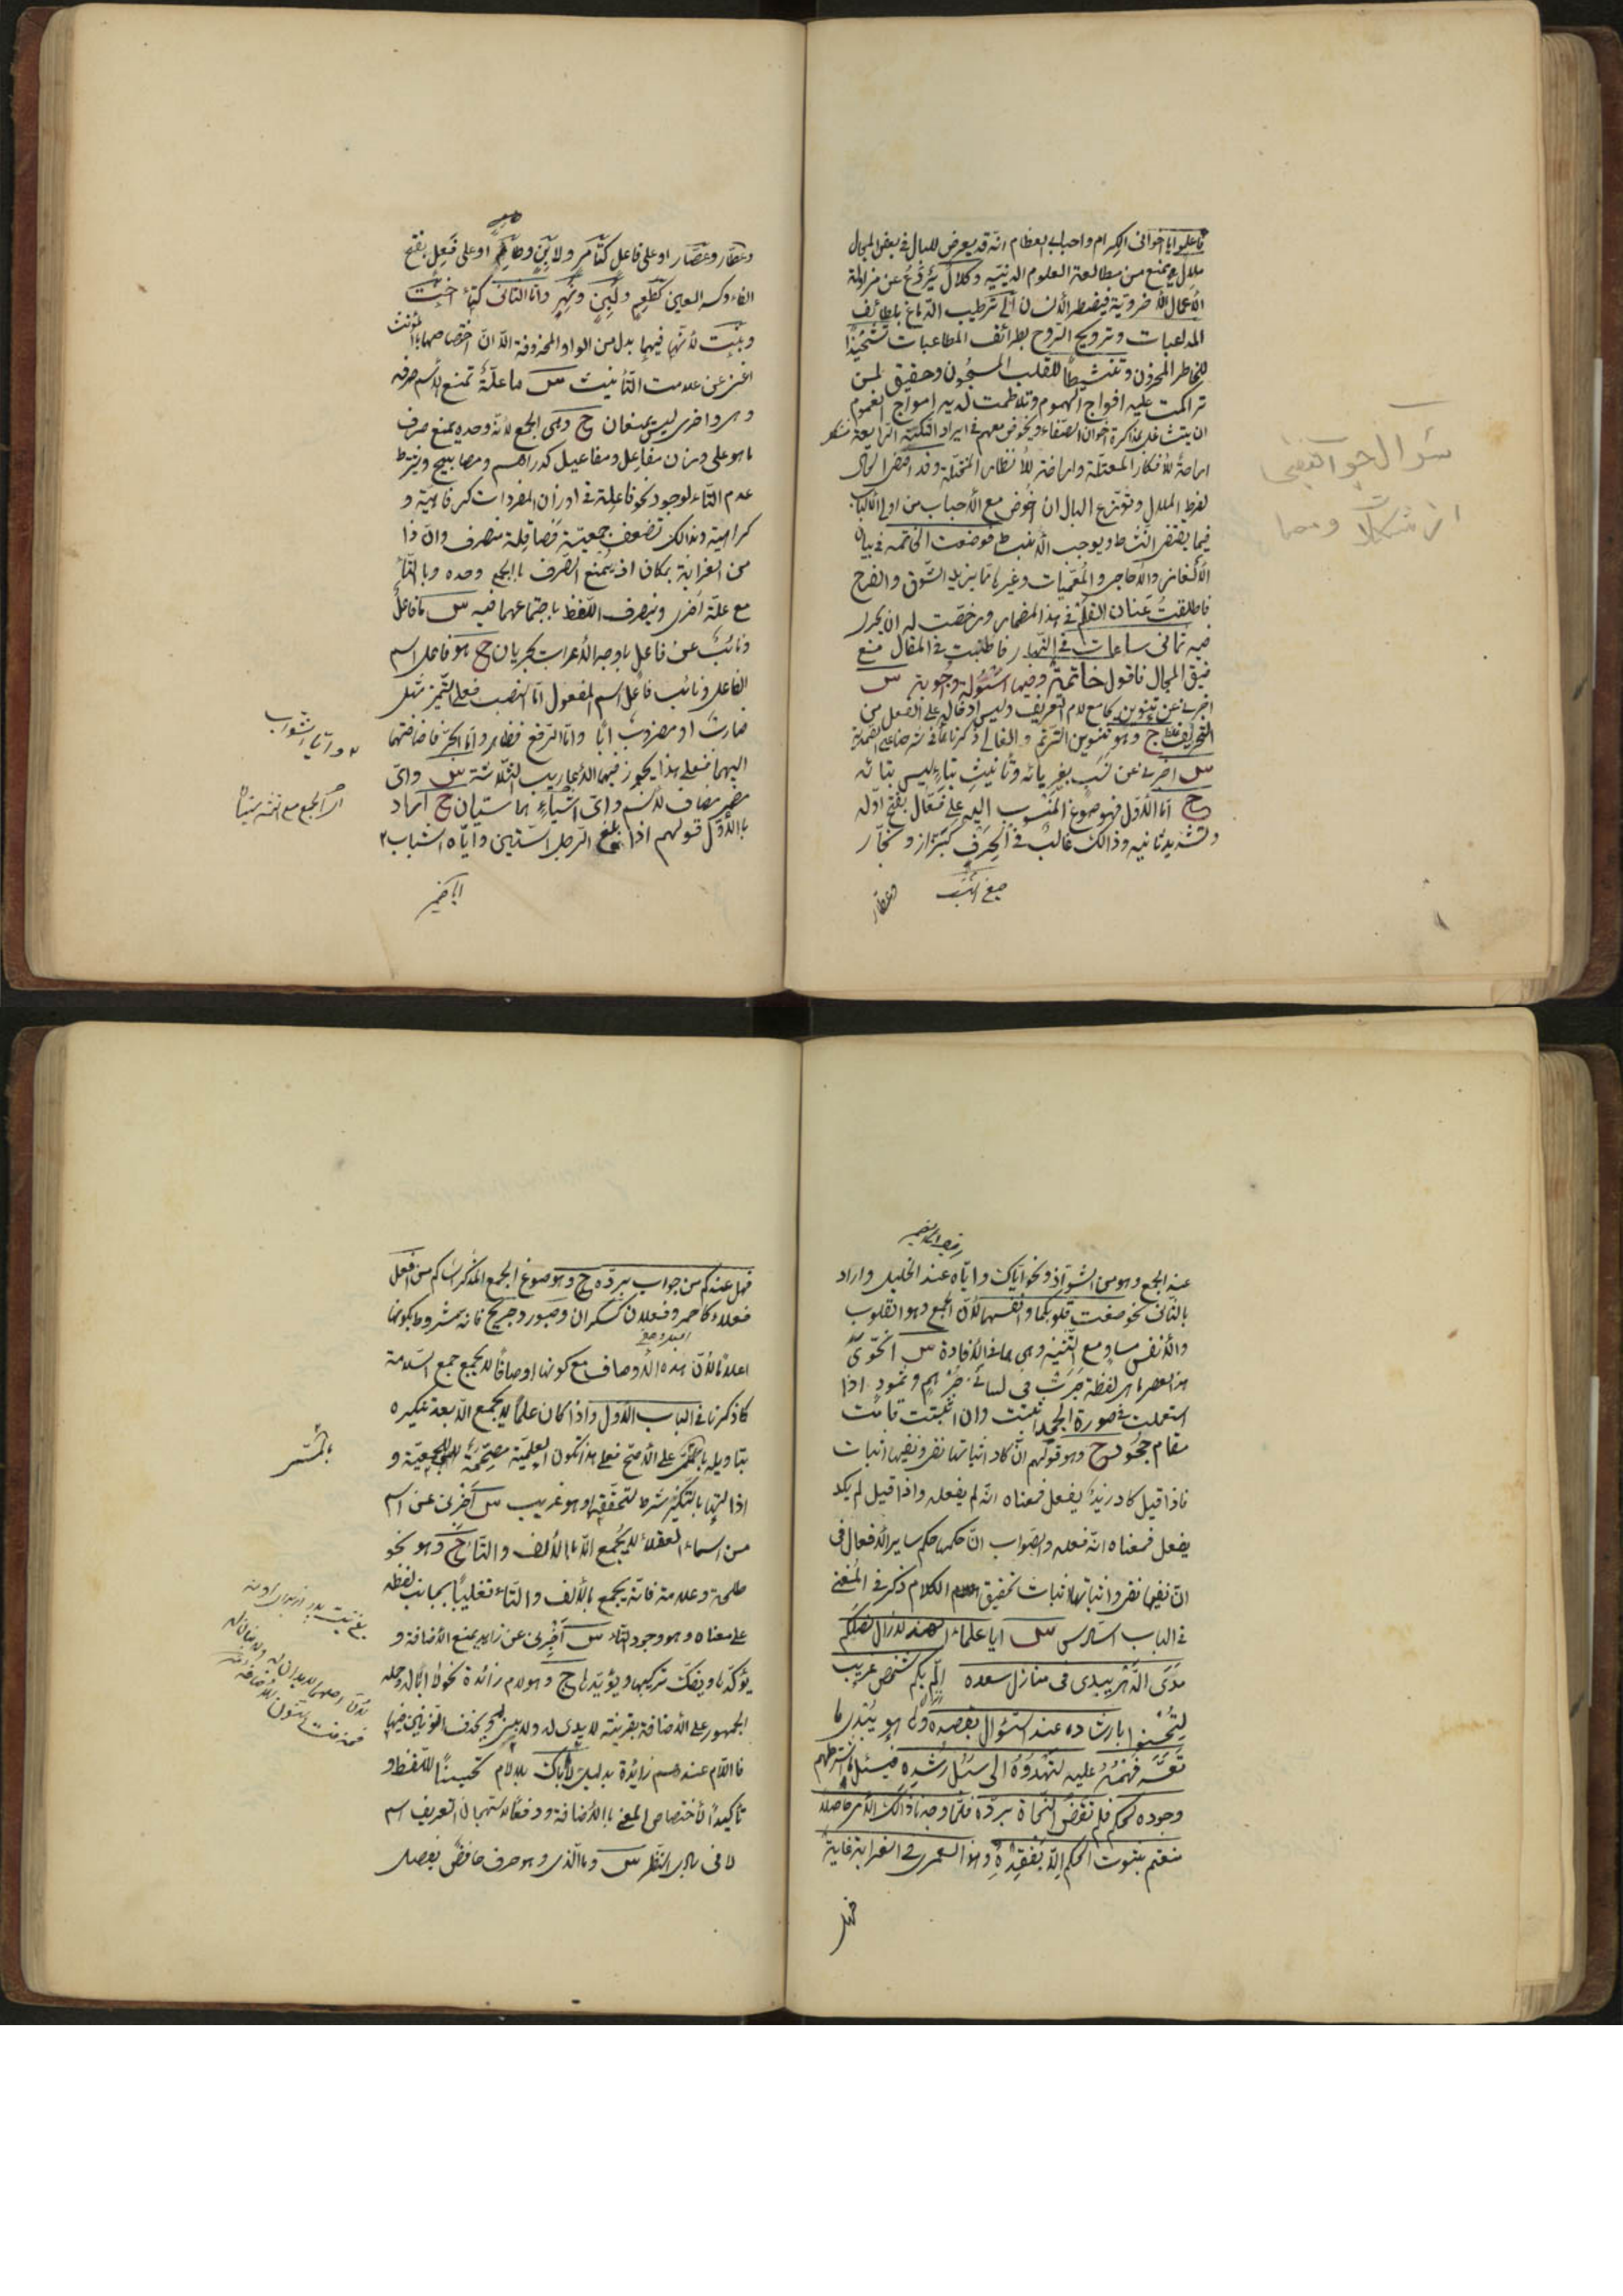 فاعلموا يا اخوانی الكرام واحبابی العظام انه قد يعرض للبال فی بعض المجال
ملال يمنع من مطالعة العلوم الدينيه وكلال يردع عن مزاولة
الأعمال الأخروية فيضطر الأنسان الی ترطيب الدماغ بلطائف
المداعبات وترويح الروح بطرائف المطايبات تشحيذا
للخاطر المحزون وتنشيطا للقلب المسجون وحقيق لمن
تراكمت عليه افواج الهموم وتلاطمت لديه امواج الغموم
ان يتشاغل بمذاكرة اخوان الصفاء ويخوض معهم فی ايراد النكتة
اراحة للأفكار المعتقلة واراضة للأنظار وقد اقتضی الحال
لفرط الملال وتوزع البال ان اخوض مع الأحباب من اولی الألباب
فيما يقتضی النشاط ويوجب الأنبساط فوضعت الخاتمه فی بيان
الألغاز والأحاجی والمعميات وغيرها مما يزيد الشوق والفرح
فاطلقت عنان القلم فی هذا المضمار ورخصت له ان يجری
فيه ثمانی ساعات فی النهار فاطنبت فی المقال مع
ضيق المجال فاقول خاتمة وفيها اسئولة واجوبة س
اخبرنی عن تنوين يجامع لام التعريف وليس ادخاله علی الفعل من
التحريف ج وهو تنوين الترنم والغالی ذكرناها فی شرحنا علی الصمدية
س اخبرنی عن نسب بغير يائه وتأنيث بتاء ليس بتائه
ج اما الأول فهو صوغ المنسوب اليه علی فعال بفتح اوله
وتشديد ثانيه وذالك غالب فی الحرف كبزاز ونجار
صيغ النسب
وعطار
سوال جواب
وعطار وعصار او علی فاعل كتامر ولابن وطاعم او علی فعل بفتح
الفاء وكسر العين كطعم ولبن ونهر واما الثانی كتاء اخت
وبنت لأنها فيهما بدل من الواو المحذوفة الا ان اختصاصها بالمؤنث
اغنی عن علامت التأنيث س ما علة تمنع الأسم صرفه
وهی واخری ليس يمنعان ج وهی الجمع لأنه وحده يمنع صرف
ما هو علی وزن مفاعل ومفاعيل كدراهم ومصابيح ويشترط
عدم التاء لوجود نحو فاعلة فی اوزان المفردات كرفاهية و
كراهية وبذالك تضعف جمعيته فصياقلة منصرف وان ذا
من الغرابة بمكان اذ يمنع الصرف بالجمع وحده وبالتاء
مع علة اخری وينصرف اللفظ باجتماعهما فيه س ما فاعل
ونائب عن فاعل باوجه الأعراب يجريان ج هو فاعل اسم
الفاعل ونائب فاعل اسم المفعول اما النصب فعلی التميز مثل
ضارب او مضروب ابا واما الرفع فظاهر واما الجر فاضافتهما
اليهما فعلی هذا يجوز فيهما الأعاريب الثلاثة س وای
ضمير مضاف لأسم وای اشياء هما ستيان ج اراد
بالأول قولهم اذا بلغ الرجل الستين واياه الشباب ٢
٢ وايا الشواب
ايا ضمير
عند الجمع وهو من الشواذ ونحو اياك واياه عند الخليل واراد
بالثانی نحو صغت قلوبكما وانفسهما لأن الجمع وهو القلوب
والأنفس مساو مع التثنيه وهی هما فی الأفادة س انحوی
هذا العصر ما هی لفظة جرت فی لسانی جرهم وثمود اذا
استعملت فی صورة الجحد اثبتت وان اثبتت قامت
مقام جحود ج وهو قولهم ان كاد اثباتها نفی ونفيها اثبات
فاذا قيل كاد زيد يفعل فمعناه انه لم يفعله واذا قيل لم يكد
يفعل فمعناه انه فعله والصواب ان حكمها حكم ساير الأفعال فی
ان نفيها نفی واثباتها اثبات تحقيق الكلام ذكر فی المغنی
فی الباب السادس س ايا علماء الهند لازال فضلكم
مدی الدهر يبدی فی منازل سعده الم بكم شخص غريب
لتحسنوا بارشاده عند السؤال بقصده وها هو يبدی ما
تعسر فهمه عليه لتهدوه الی سبل رشده فيسئل ما شرطهم
وجوده لحكم فلم تقض النحاة برده فلما وجدنا ذالك الأمر حاصلا
منعتم ثبوت الحكم الا بفقده وهذا لعمری فی الغرابة غاية
فهل
فهل عندكم من جواب برده ج وهو صوغ الجمع المذكر السالم من افعل
فعلاء كاحمر وفعلان كسكران وصبور وجريح فانه مشروط بكونها
اعلاما لأن هذه الأوصاف مع كونها اوصافا لا يجمع جمع السلامة
كما ذكرنا فی الباب الأول واذا كان علما لا يجمع الا بعد تنكيره
بتاويله بالمسمی علی الأصح فعلی هذا تكون العلمية مصححة للجمعية و
اذا التها بالتنكير شرط لتحققها وهو غريب س اخبرنی عن اسم
من اسماء العقلاء لا يجمع الا بالألف والتاء ج وهو نحو
طلحة وعلامة فانه يجمع بالألف والتاء تغليبا بجانب لفظه
علی معناه وهو وجود التاء س اخبرنی عن زايد يمنع الأضافة و
يؤكدها ويفك تركيبها ويؤيدها ج وهو لام زائدة نحو لا ابا له وحمله
الجمهور علی الأضافة بقرينة لا يدی له بحذف النونين فيهما
فاللام عندهم زائدة بدليل لا اباك بلا لام تحسينا للفظ و
تأكيدا لأختصاص المعنی بالأضافة ودفعا لاستهجان تعريف اسم
لا فی بادی النظر س وما الذی وهو حرف خافض بفصل